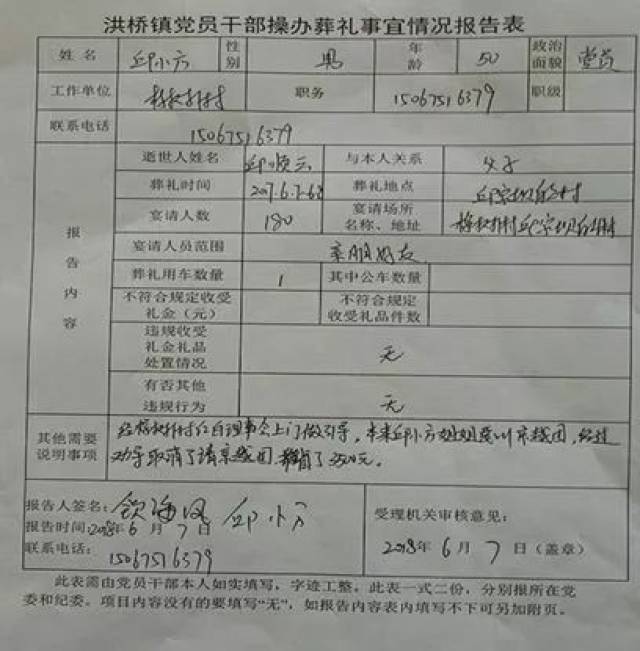 洪桥镇党员干部操办葬礼事宜情况报告表
姓名 邱小方 性别 男 年龄 50 政治面貌 党员
工作单位 村 职务 15067516379 职级
联系电话 15067516379
报告内容
逝世人姓名 邱顺云 与本人关系 父子
葬礼时间 葬礼地点 村
宴请人数 180 宴请场所名称、地址 村
宴请人员范围 亲朋好友
葬礼用车数量 1 其中公车数量
不符合规定收受礼金（元） 不符合规定收受礼品件数
违规收受礼金礼品处置情况 无
有否其他违规行为 无
其他需要说明事项 经 村红白理事会上门做引导，本来邱小方姐姐要叫京戏团，经过
劝导取消了请京戏团，节省了3500元。
报告人签名： 邱小方
报告时间：2018年6月7日
联系电话：15067516379
受理机关审核意见：
2018年6月7日（盖章）
此表需由党员干部本人如实填写，字迹工整，此表一式二份，分别报所在党
委和纪委。项目内容没有的要填写“无”，如报告内容表内填写不下可另加附页。